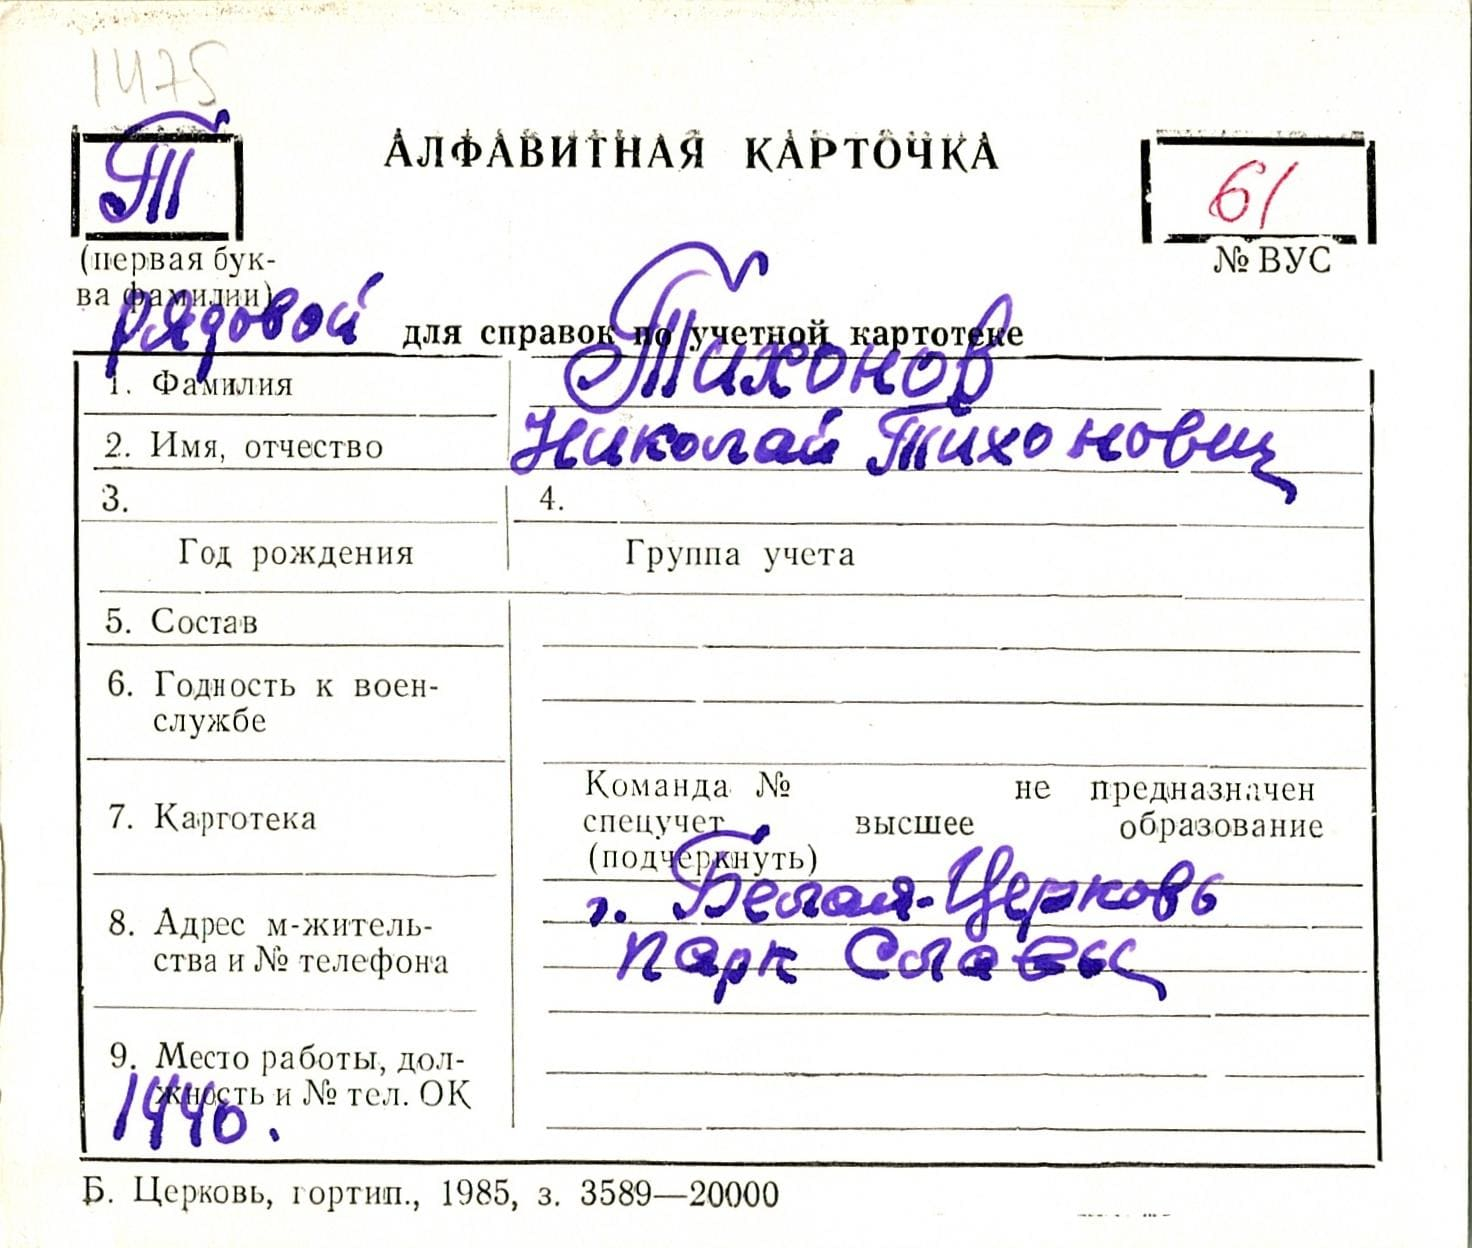 1475
Т
АЛФАВИТНАЯ КАРТОЧКА
61
(первая бук-
ва фамилии)
№ ВУС
рядовой
для справок по учетной картотеке
1. Фамилия
Тихонов
2. Имя, отчество
Николай Тихонович
3.
4.
Год рождения
Группа учета
5. Состав
6. Годность к воен-
службе
7. Картотека
Команда № не предназначен
спецучет высшее образование
(подчеркнуть)
8. Адрес м-житель-
ства и № телефона
г. Белая-Церковь
парк Славы
9. Место работы, дол-
жность и № тел. ОК
Б. Церковь, гортип., 1985, з. 3589—20000